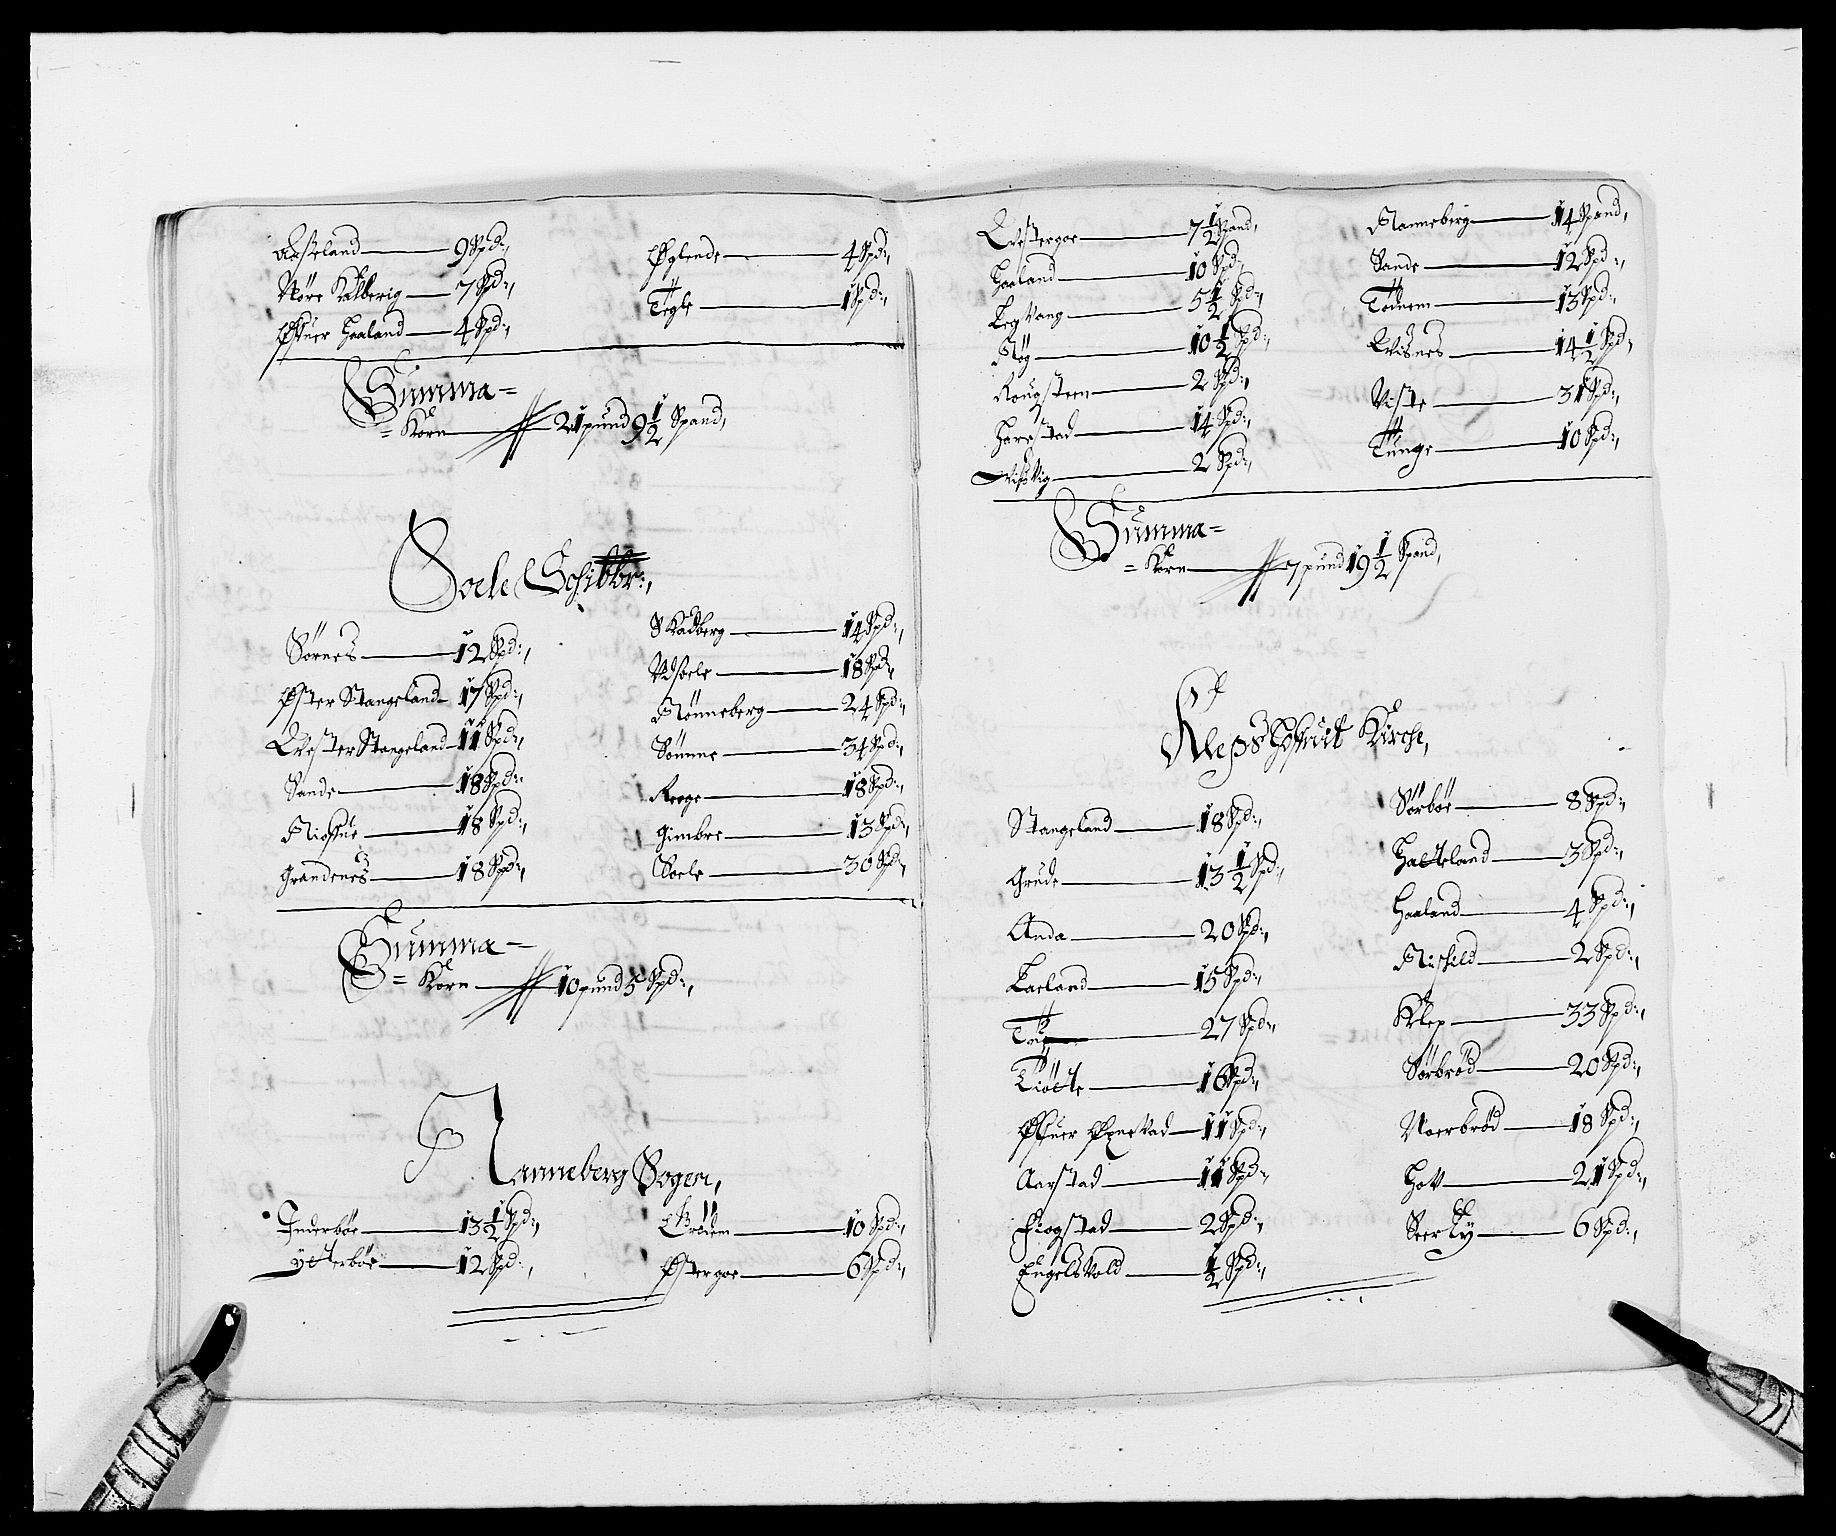 Aasland 9 Spd:,
Nöre Kalberig 7 Spd:,
Öfuer Haaland 4 Spd:,
Öglende 4 Spd:,
Tegle 1 Spd:,
Summa =
= Korn 21 pund 9 1/2 Spand,
Soele Schibbr:,
Sörnes 12 Spd:,
Öster Stangeland 17 Spd:,
Wester Stangeland 11 Spd:,
Sande 18 Spd:,
Miosue 18 Spd:,
Grandenes 18 Spd:,
Skadberg 14 Spd:,
Vdsoele 18 Spd,
Rönneberg 24 Spd:,
Sömme 34 Spd:,
Reege 18 Spd:,
Gimbre 13 Spd:,
Soele 30 Spd,
Summa =
= Korn 10 pund 5 Spd:,
Ranneberg Sogen,
Inderböe 13 1/2 Spd:,
Ytterböe 12 Spd:,
Brödem 10 Spd:,
Östergoe 6 Spd:,
Westergoe 7 1/2 Spand,
Haaland 10 Spd:,
Legvang 5 1/2 Spd:,
Rög 10 1/2 Spd:,
Rougsteen 2 Spd:,
Harestad 14 Spd:,
Wisvig 2 Spd:,
Ranneberg 14 Spand,
Sande 12 Spd:,
Todnem 13 Spd:,
Wisnes 14 1/2 Spd:,
Viste 31 Spd:,
Tunge 10 Spd:,
Summa =
= Korn 7 pund 19 1/2 Spand,
Kleps Kirche,
Stangeland 18 Spd:,
Grude 13 1/2 Spd:,
Anda 20 Spd:,
Laeland 15 Spd:,
Tu 27 Spd:,
Tiötte 16 Spd:,
Öfuer Öxnevad 11 Spd:,
Aarstad 11 Spd:,
Fiogstad 2 Spd:,
Engelsvold 1/2 Spd:,
Sörböe 8 Spd:,
Hatteland 3 Spd:,
Haaland 4 Spd:,
Risheld 2 Spd:,
Klep 33 Spd:,
Sörbröd 20 Spd:,
Noerbröd 18 Spd:,
Hov 21 Spd:,
Seerky 6 Spd:,